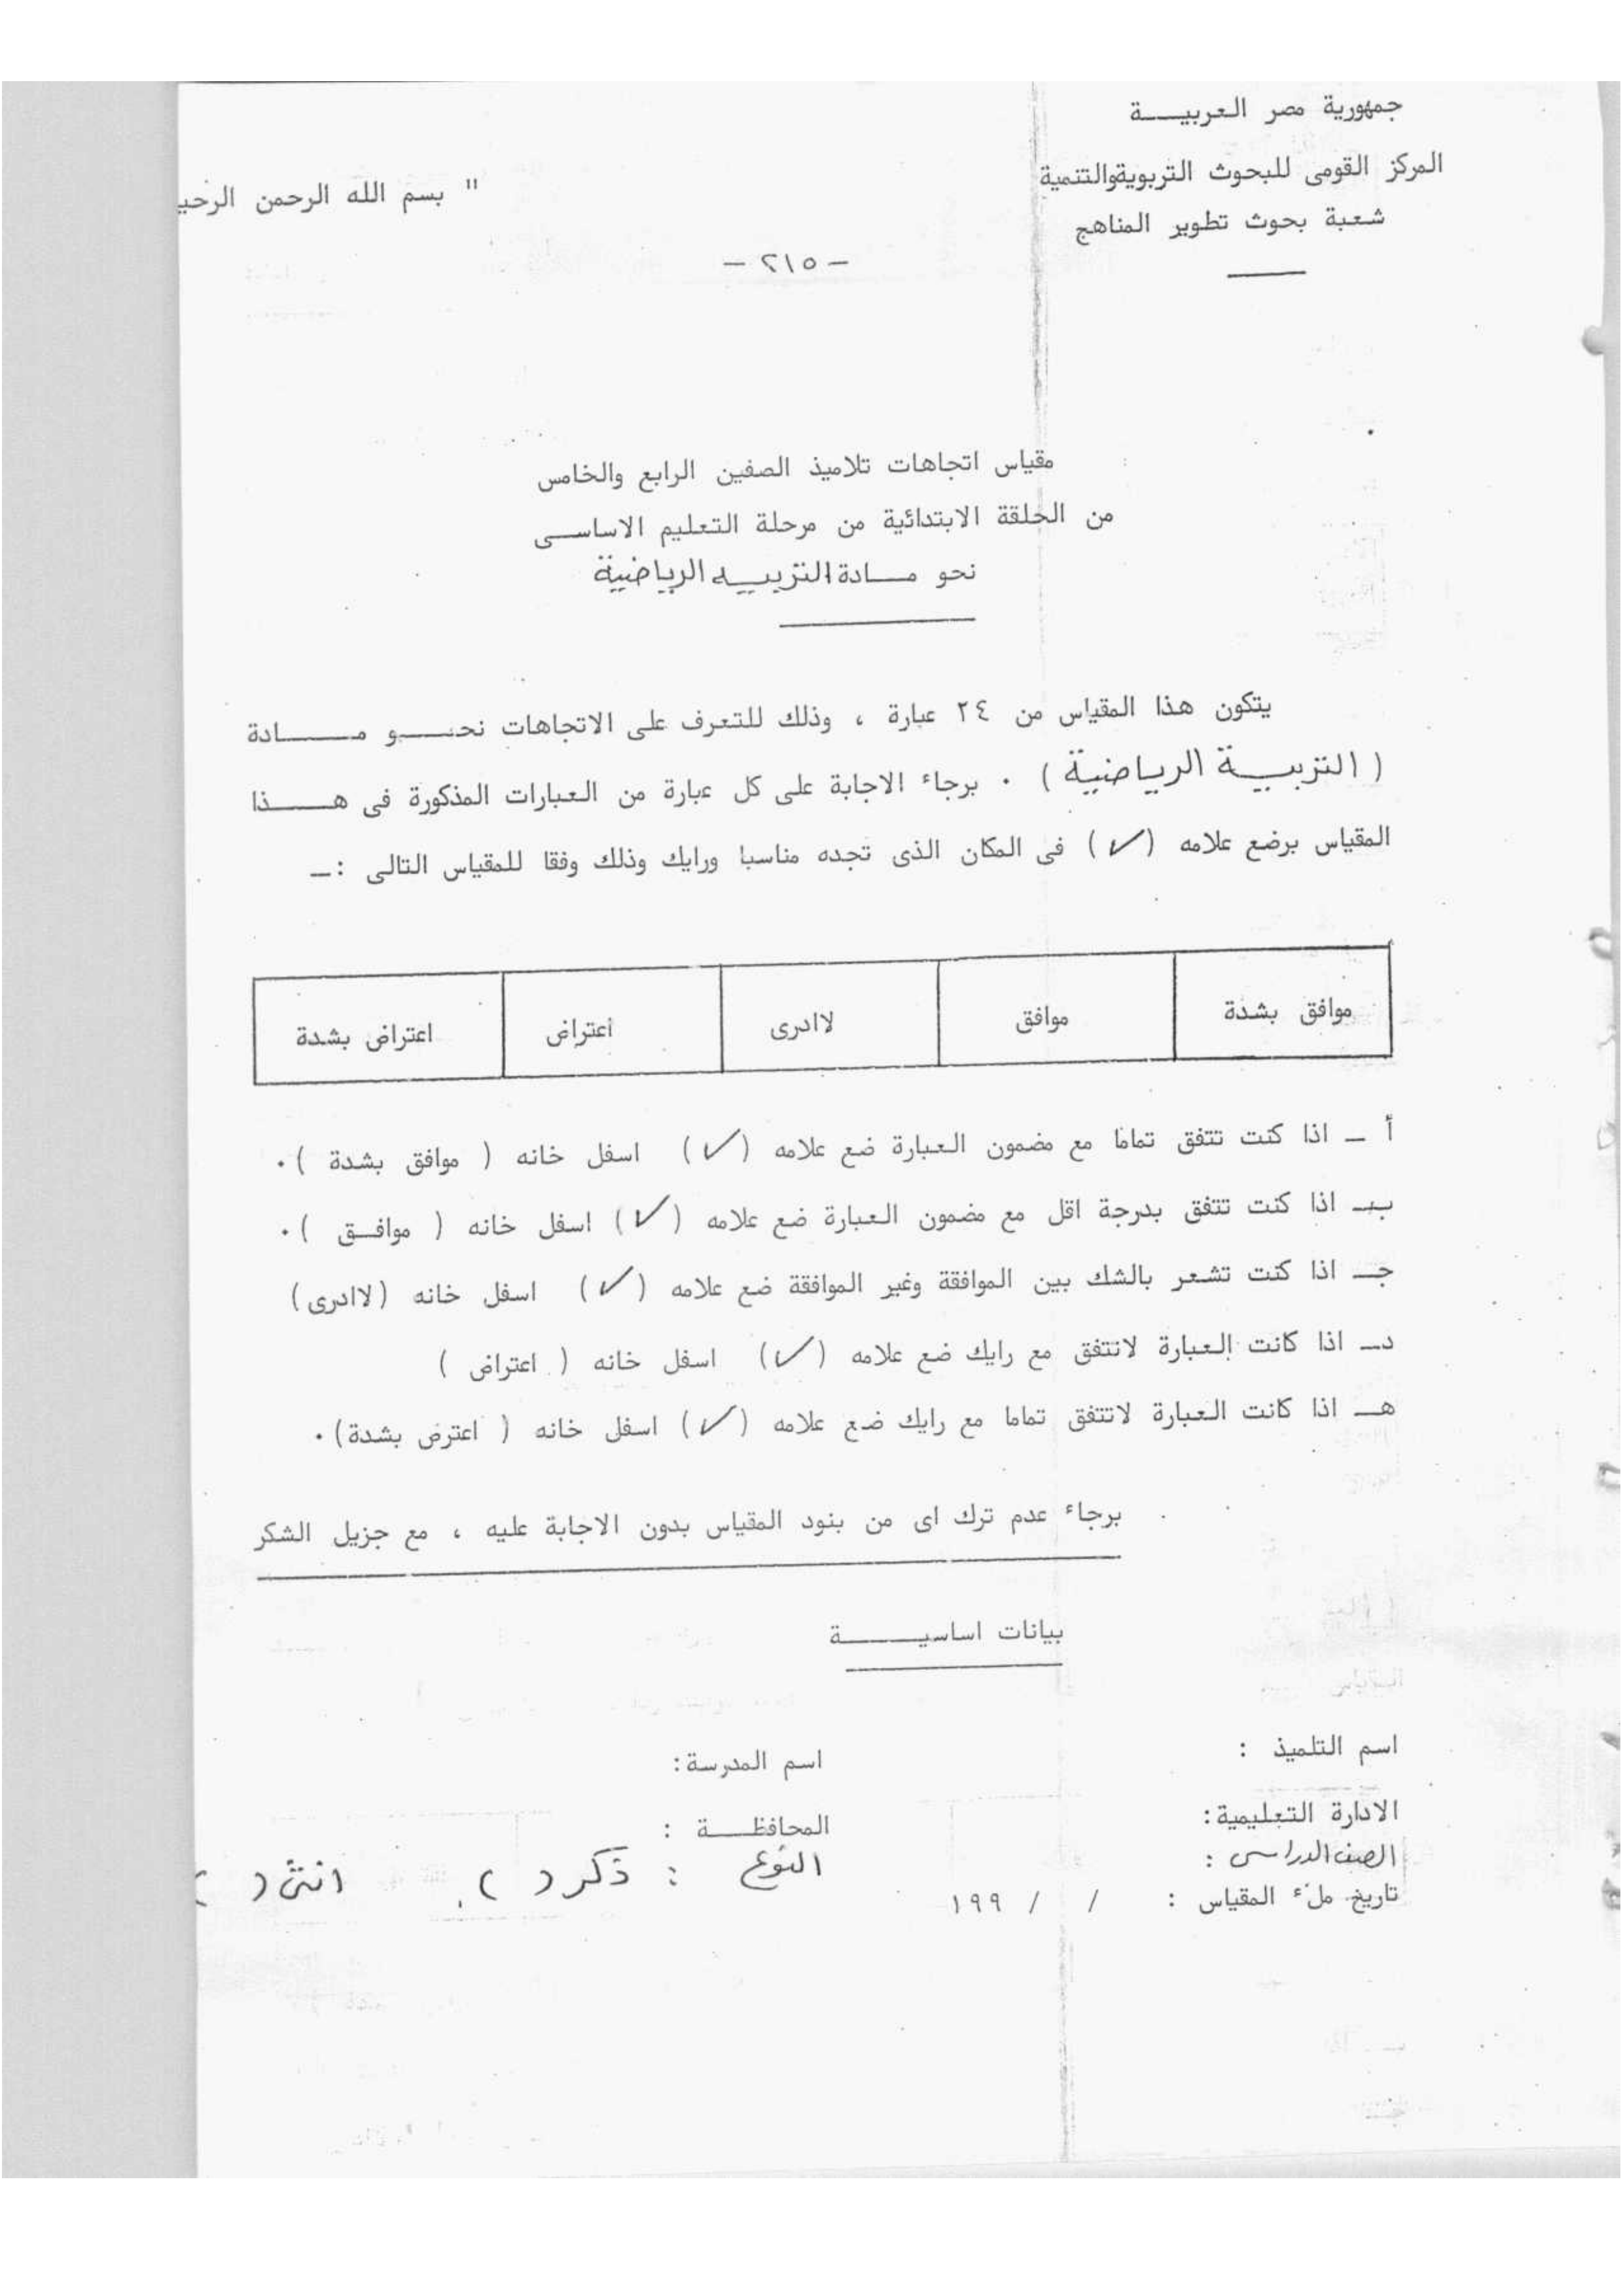 جمهورية مصر العربيـــة
المركز القومى للبحوث التربوية والتنمية
شعبة بحوث تطوير المناهج
" بسم الله الرحمن الرحي
– ٢١٥ –
مقياس اتجاهات تلاميذ الصفين الرابع والخامس
من الحلقة الابتدائية من مرحلة التعليم الاساســى
نحو مــادة التربيــه الرياضية
يتكون هذا المقياس من ٢٤ عبارة ، وذلك للتعرف على الاتجاهات نحــــو مــــــادة
( التربيــة الرياضية ) . برجاء الاجابة على كل عبارة من العبارات المذكورة فى هــــذا
المقياس برضع علامه (✓) فى المكان الذى تجده مناسبا ورايك وذلك وفقا للمقياس التالى :ــ
موافق بشدة موافق لاادرى اعتراض اعتراض بشدة
أ ــ اذا كنت تتفق تماما مع مضمون العبارة ضع علامه (✓) اسفل خانه ( موافق بشدة ).
بــ اذا كنت تتفق بدرجة اقل مع مضمون العبارة ضع علامه (✓) اسفل خانه ( موافــق ).
جــ اذا كنت تشعر بالشك بين الموافقة وغير الموافقة ضع علامه (✓) اسفل خانه (لاادرى)
دــ اذا كانت العبارة لاتتفق مع رايك ضع علامه (✓) اسفل خانه ( اعتراض )
هــ اذا كانت العبارة لاتتفق تماما مع رايك ضع علامه (✓) اسفل خانه ( اعترض بشدة).
برجاء عدم ترك اى من بنود المقياس بدون الاجابة عليه ، مع جزيل الشكر
بيانات اساسيــــــة
اسم التلميذ : اسم المدرسة:
الادارة التعليمية: المحافظــــة :
الصف الدراسى : النوع : ذكر ( ). انثى ( )
تاريخ ملء المقياس : / / ١٩٩